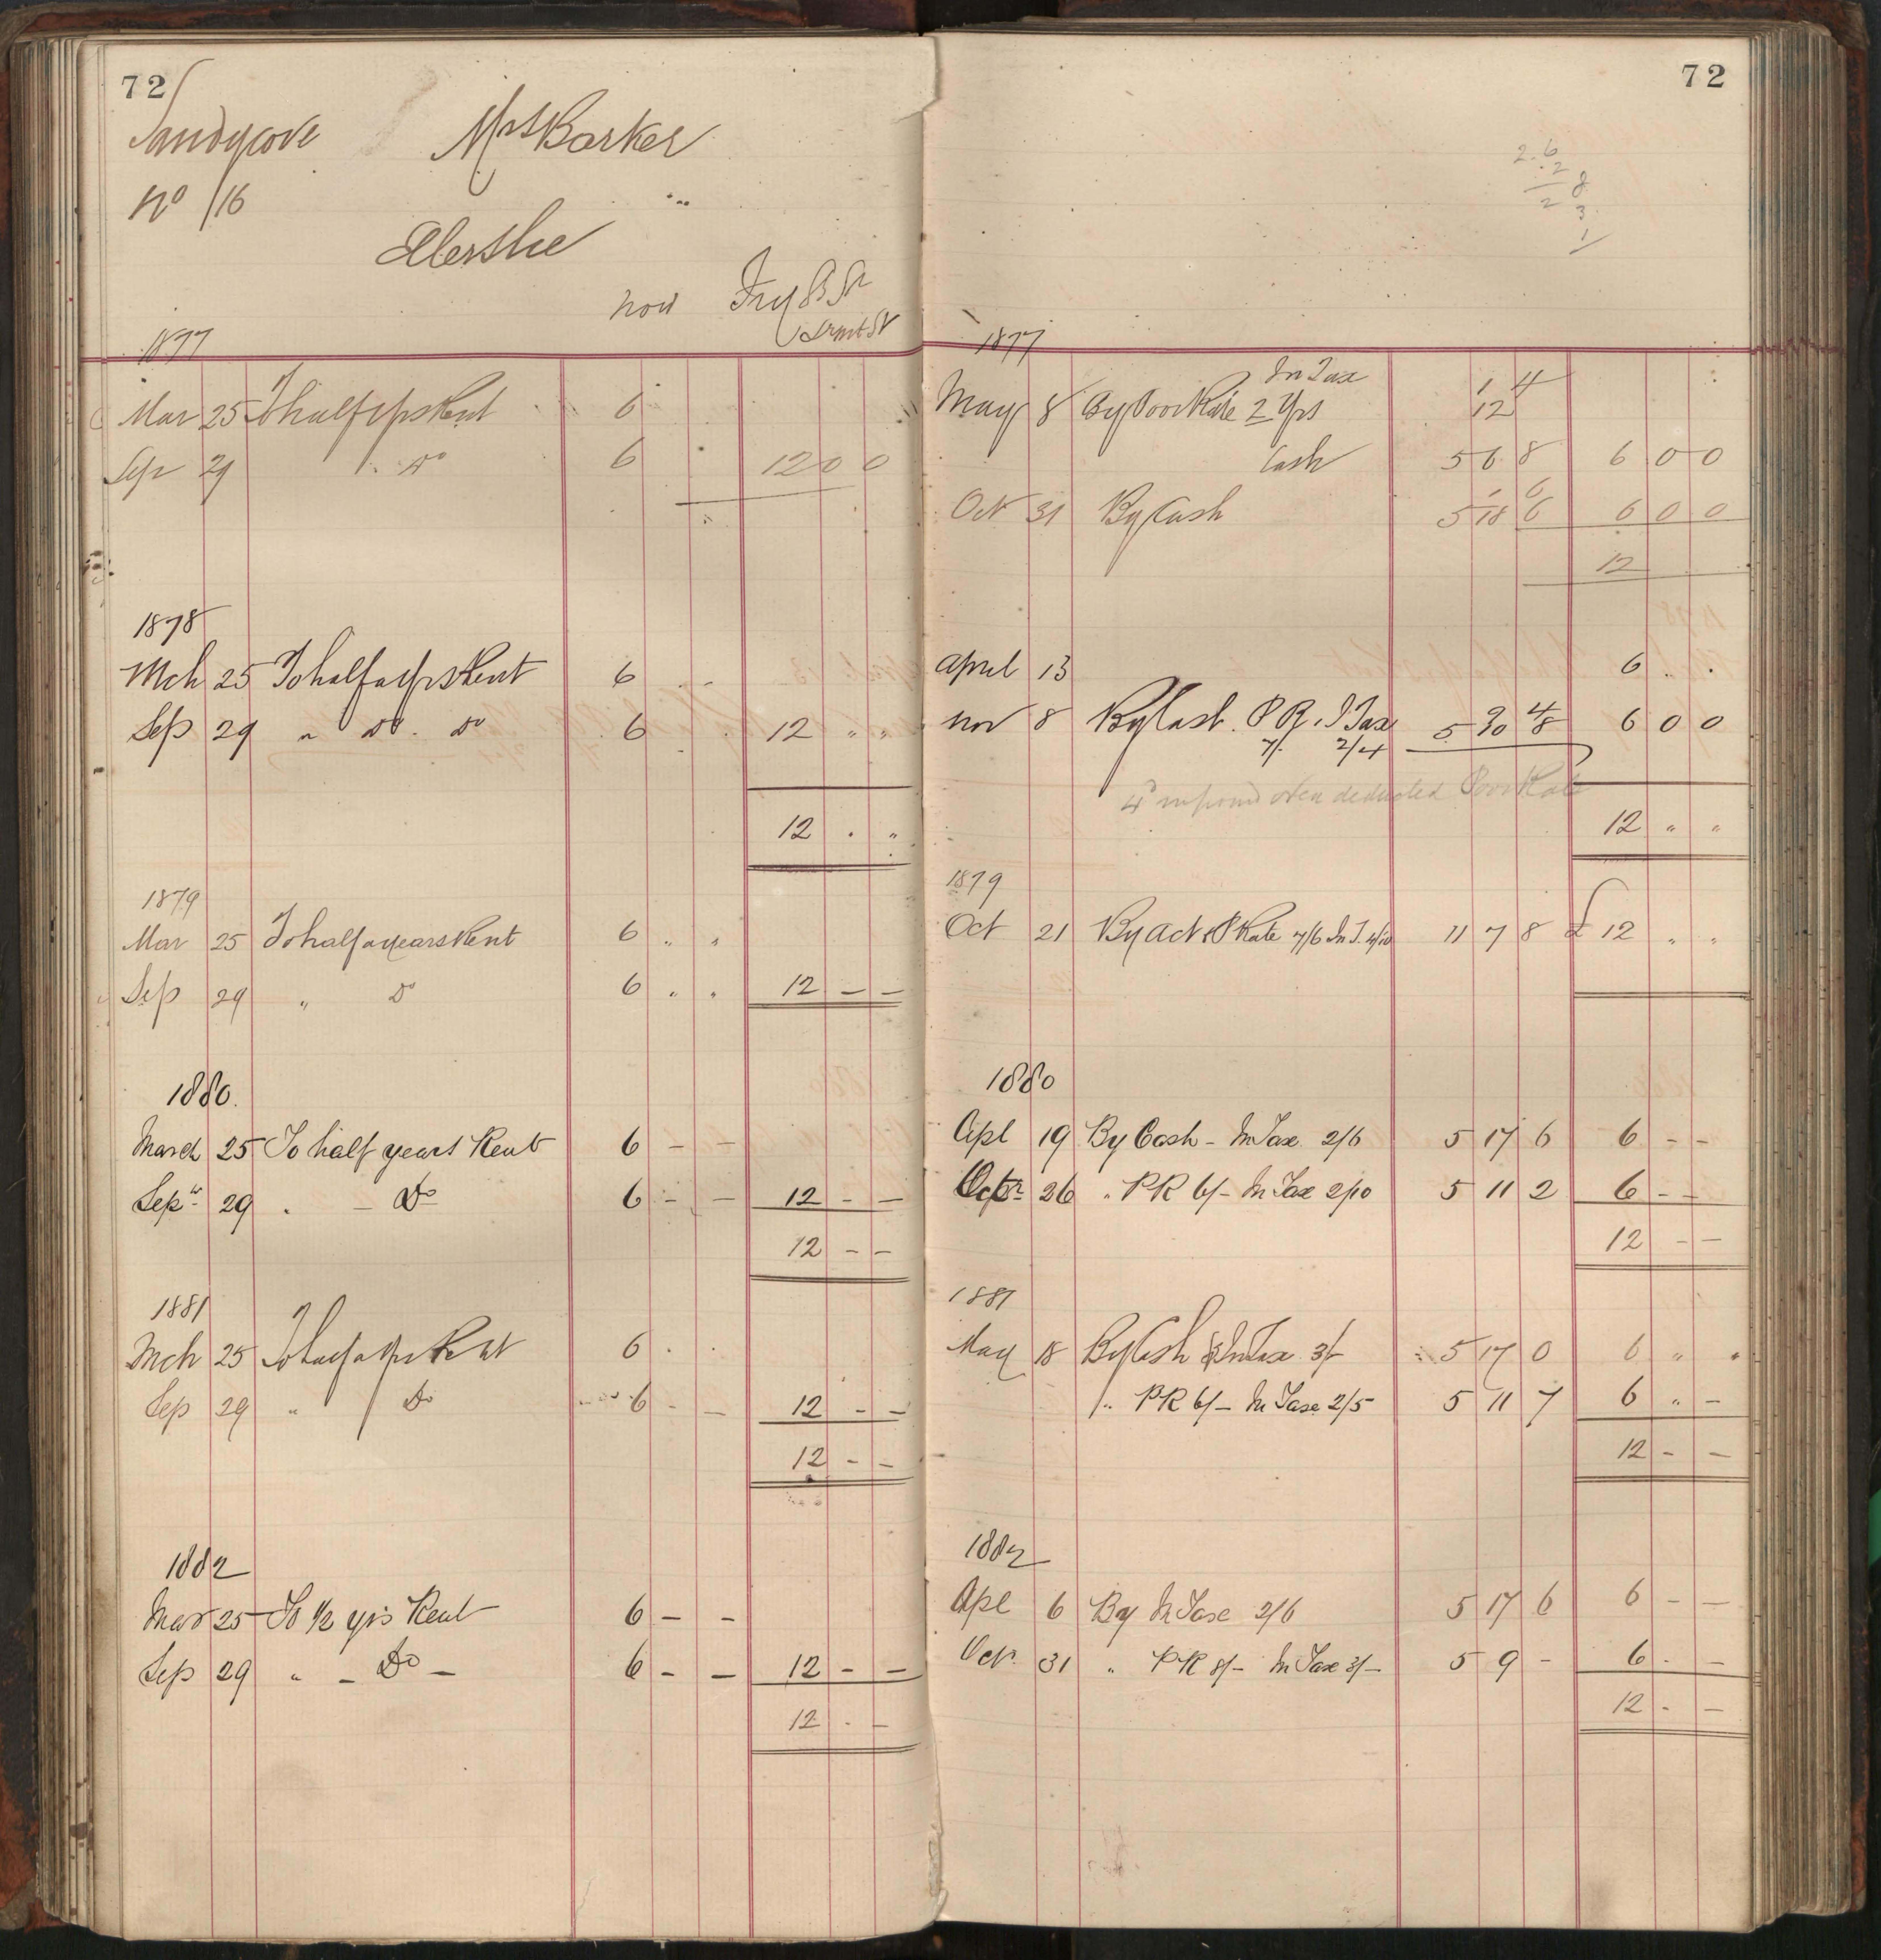 72
Sandycove Mrs Barker
No 116
Elerslie
now Fry & Sn
1877
Mar 25 To half a yrs Rent 6
Sep 29 " Do 6 12 0 0
1878
Mch 25 To half a yrs Rent 6 . .
Sep 29 " Do . Do 6 . . 12 " "
12 . "
1879
Mar 25 To half a years Rent 6 " "
Sep 29 " Do 6 " " 12 — —
1880.
March 25 To half years Rent 6 — —
Sepr 29 " — Do 6 — — 12 — —
12 — —
1881
Mch 25 To half a yrs Rent 6 . .
Sep 29 " Do 6 — — 12 — —
12 — —
1882
Mar 25 To 1/2 yrs Rent 6 — —
Sep 29 " — Do — 6 — — 12 — —
12 . —
72
2.6
.2
2 8
3
1
1877
In Tax 1 4
May 8 By Poor Rate 2 Yrs 12
Cash 5 6 8 6 0 0
Oct 31 By Cash 5 18 6 6 0 0
12
April 13 6 . .
Nov 8 By Cash . P R . I Tax 5 6 0 0
7/. 2/4
deducted Poor Rate
12 " "
1879
Oct 21 By Act & P Rate 7/6 In T. 4/10 11 7 8 £12 " "
1880
Apl 19 By Cash — In Tax 2/6 5 17 6 6 — —
Octr 26 " PR 6/— In Tax 2/10 5 11 2 6 — —
12 — —
1881
May 18 By Cash & In Tax 3/ 5 17 0 6 " "
" PR 6/— In Tax 2/5 5 11 7 6 " —
12 — —
1882
Apl 6 By In Tax 2/6 5 17 6 6 — —
Oct. 31 " PR 8/— In Tax 3/— 5 9 — 6 . —
12 . —